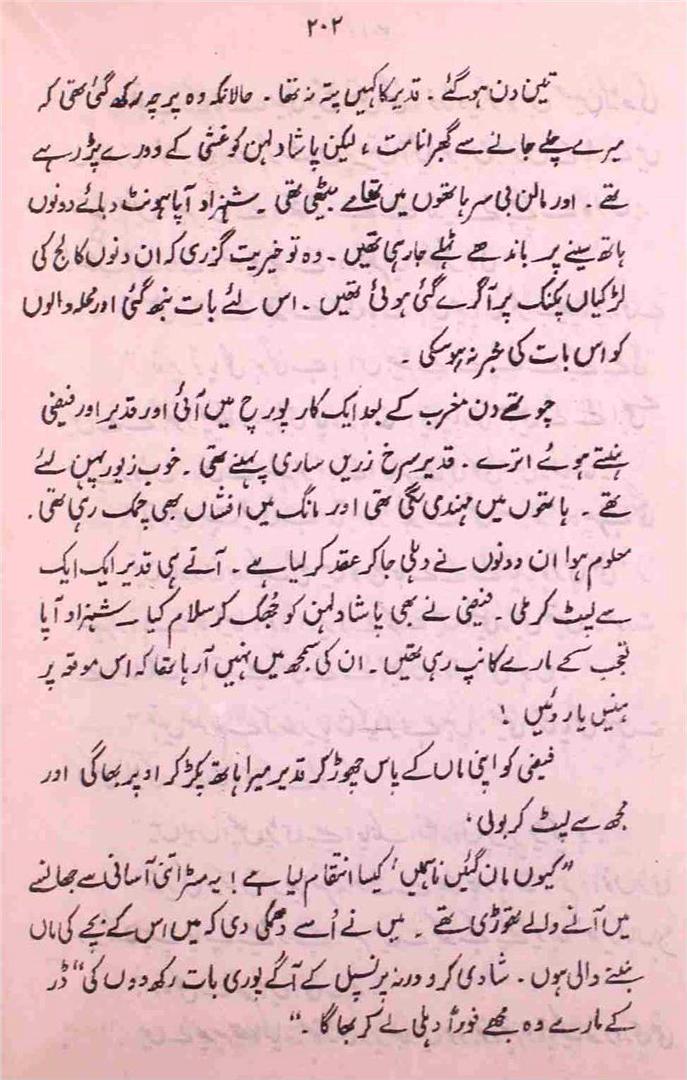 ۲۰۲
تین دن ہو گئے ۔ قدیر کا کہیں پتہ نہ تھا ۔ حالانکہ وہ پرچہ رکھ گئی تھی کہ
میرے چلے جانے سے گھبرانا مت ، لیکن پاشا دلہن کو غشی کے دورے پڑ رہے
تھے ۔ اور مالن بی سر ہاتھوں میں تھامے بیٹھی تھی ۔ شہزاد آپا ہونٹ دبائے دونوں
ہاتھ سینے پر باندھے ٹہلے جا رہی تھیں ۔ وہ تو خیریت گزری کہ ان دنوں کالج کی
لڑکیاں پکنک پر آگرے گئی ہوئی تھیں ۔ اس لئے بات نبھ گئی اور محلہ والوں
کو اس بات کی خبر نہ ہو سکی ۔
چوتھے دن مغرب کے بعد ایک کار پورچ میں آئی اور قدیر اور فیضی
ہنستے ہوئے اترے ۔ قدیر سرخ زریں ساری پہنے تھی ۔ خوب زیور پہن لئے
تھے ۔ ہاتھوں میں مہندی لگی تھی اور مانگ میں افشاں بھی چمک رہی تھی ۔
معلوم ہوا ان دونوں نے دہلی جا کر عقد کر لیا ہے ۔ آتے ہی قدیر ایک ایک
سے لپٹ کر ملی ۔ فیضی نے بھی پاشا دلہن کو جُھک کر سلام کیا ۔ شہزاد آپا
تعجب کے مارے کانپ رہی تھیں ۔ ان کی سمجھ میں نہیں آ رہا تھا کہ اس موقعہ پر
ہنسیں یا روئیں !
فیضی کو اپنی ماں کے پاس چھوڑ کر قدیر میرا ہاتھ پکڑ کر اوپر بھاگی اور
مجھ سے لپٹ کر بولی ،
"کیوں مان گئیں نا ہمیں ، کیسا انتقام لیا ہے ! یہ مسٹر اتنی آسانی سے جھانسے
میں آنے والے تھوڑی تھے ۔ میں نے اُسے دھمکی دی کہ میں اس کے بچے کی ماں
بننے والی ہوں ۔ شادی کرو ورنہ پرنسپل کے آگے پوری بات رکھ دوں گی" ڈر
کے مارے وہ مجھے فوراً دہلی لے کر بھاگا ۔"